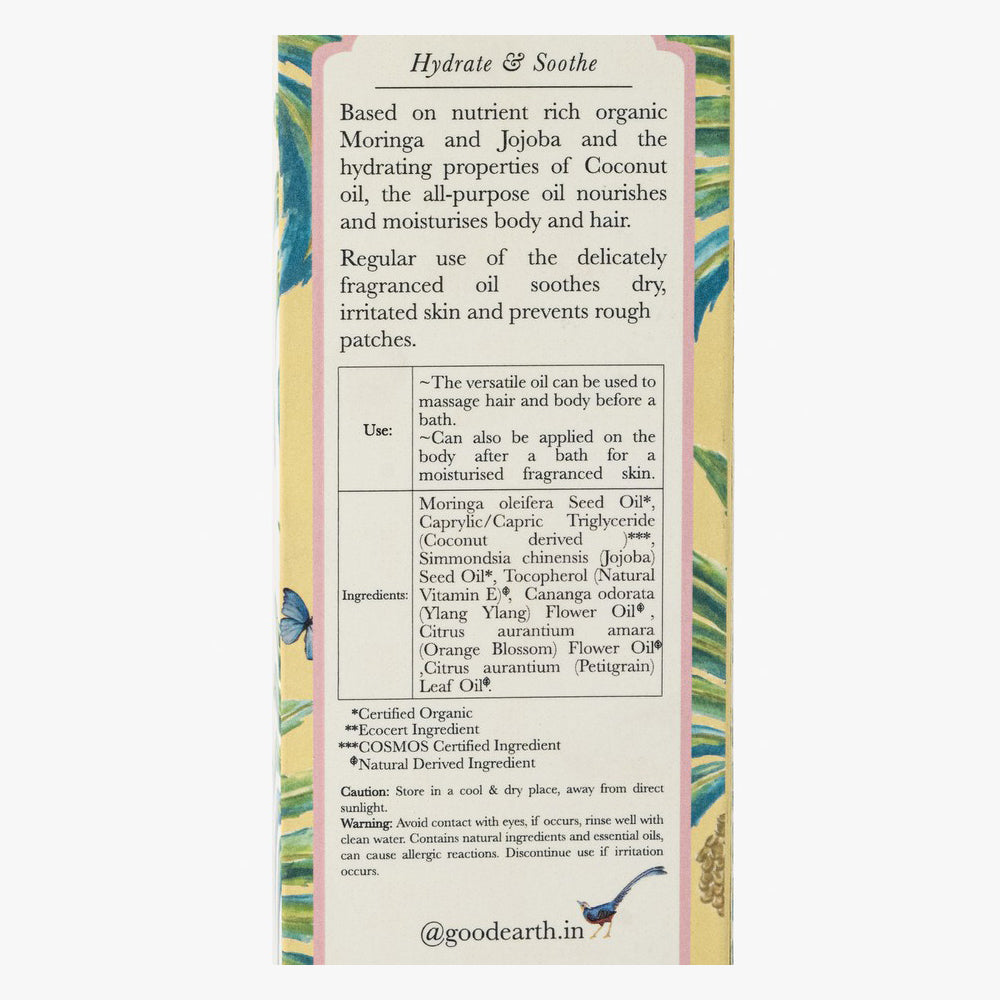 Hydrate & Soothe
Based on nutrient rich organic
Moringa and Jojoba and the
hydrating properties of Coconut
oil, the all-purpose oil nourishes
and moisturises body and hair.
Regular use of the delicately
fragranced oil soothes dry,
irritated skin and prevents rough
patches.
Use:
~The versatile oil can be used to
massage hair and body before a
bath.
~Can also be applied on the
body after a bath for a
moisturised fragranced skin.
Ingredients:
Moringa oleifera Seed Oil*,
Caprylic/Capric Triglyceride
(Coconut derived )***,
Simmondsia chinensis (Jojoba)
Seed Oil*, Tocopherol (Natural
Vitamin E)⸙, Cananga odorata
(Ylang Ylang) Flower Oil⸙ ,
Citrus aurantium amara
(Orange Blossom) Flower Oil⸙
,Citrus aurantium (Petitgrain)
Leaf Oil⸙.
*Certified Organic
**Ecocert Ingredient
***COSMOS Certified Ingredient
⸙Natural Derived Ingredient
Caution: Store in a cool & dry place, away from direct
sunlight.
Warning: Avoid contact with eyes, if occurs, rinse well with
clean water. Contains natural ingredients and essential oils,
can cause allergic reactions. Discontinue use if irritation
occurs.
@goodearth.in